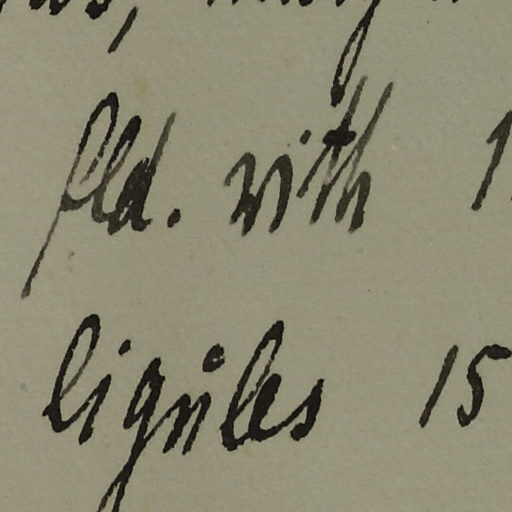 fld. with 1
ligules 15